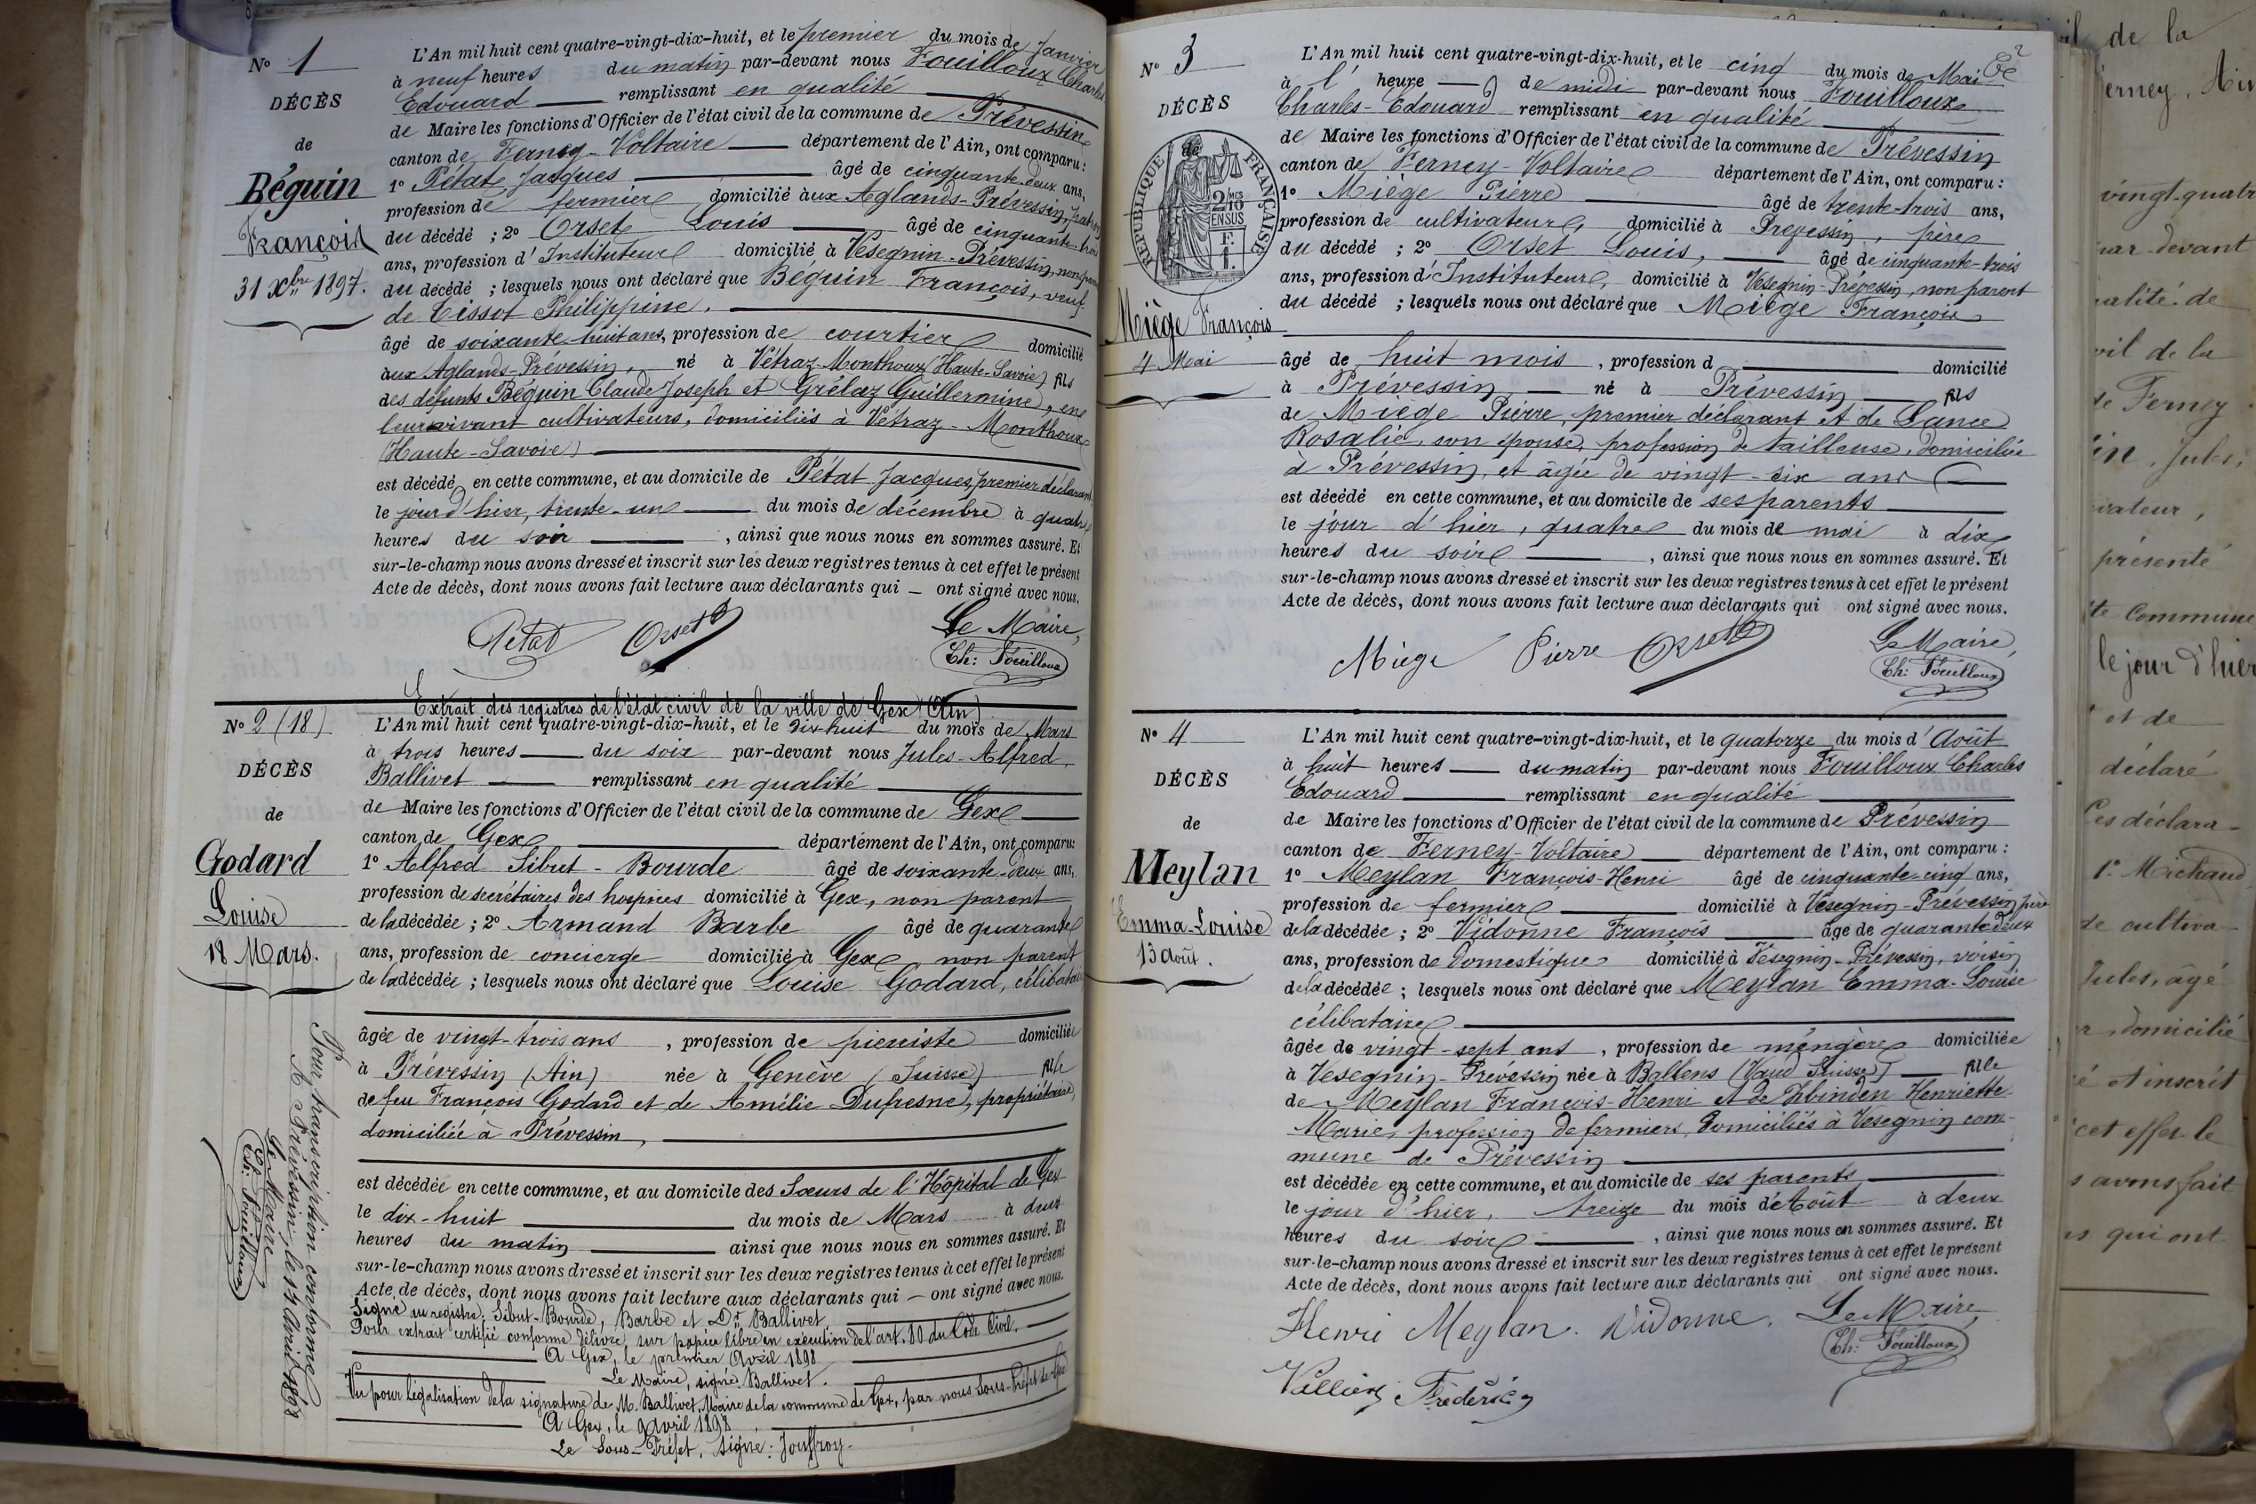 N° 1
DÉCÈS
de
Béguin
François
31 Xbre 1897.
L'An mil huit cent quatre-vingt-dix-huit, et le premier du mois de Janvier
à neuf heures du matin par-devant nous Fouilloux Charles
Edouard remplissant en qualité
de Maire les fonctions d'Officier de l'état civil de la commune de Prévessin
canton de Ferney-Voltaire département de l'Ain, ont comparu :
1° Pétat Jacques âgé de cinquante-deux ans,
profession de fermier domicilié aux Aglands-Prévessin,
du décédé ; 2° Orset Louis âgé de cinquante-trois
ans, profession d'Instituteur domicilié à Vésegnin-Prévessin, non parent
du décédé ; lesquels nous ont déclaré que Béguin François, veuf
de Cissot Philippine,
âgé de soixante-huit ans, profession de courtier domicilié
aux Aglands-Prévessin, né à Vétraz-Monthoux (Haute-Savoie) fils
des défunts Béguin Claude Joseph et Grélaz Guillermine, en
leur vivant cultivateurs, domiciliés à Vétraz-Monthoux
(Haute-Savoie)
est décédé en cette commune, et au domicile de Pétat Jacques, premier déclarant
le jour d'hier, trente-un du mois de décembre à quatre
heures du soir , ainsi que nous nous en sommes assuré. Et
sur-le-champ nous avons dressé et inscrit sur les deux registres tenus à cet effet le présent
Acte de décès, dont nous avons fait lecture aux déclarants qui — ont signé avec nous.
Petat Orset Le Maire,
Ch: Fouilloux
Extrait des registres de l'état civil de la ville de Gex (Ain)
N° 2 (18)
DÉCÈS
de
Godard
Louise
18 Mars.
L'An mil huit cent quatre-vingt-dix-huit, et le dix-huit du mois de Mars
à trois heures du soir par-devant nous Jules-Alfred
Ballivet remplissant en qualité
de Maire les fonctions d'Officier de l'état civil de la commune de Gex
canton de Gex département de l'Ain, ont comparu:
1° Alfred Sibut-Bourde âgé de soixante-deux ans,
profession de secrétaires des hospices domicilié à Gex, non parent
de la décédée ; 2° Armand Barbe âgé de quarante
ans, profession de concierge domicilié à Gex non parent
de la décédée ; lesquels nous ont déclaré que Louise Godard, célibataire
âgée de vingt-trois ans , profession de pierriste domiciliée
à Prévessin (Ain) née à Genève (Suisse) fille
de feu François Godard et de Amélie Dufresne, propriétaire,
domiciliée à Prévessin,
est décédée en cette commune, et au domicile des Sœurs de l'Hôpital de Gex
le dix-huit du mois de Mars à deux
heures du matin ainsi que nous nous en sommes assuré. Et
sur-le-champ nous avons dressé et inscrit sur les deux registres tenus à cet effet le présent
Acte de décès, dont nous avons fait lecture aux déclarants qui — ont signé avec nous.
Signé au registre: Sibut-Bourde, Barbe et Dr Ballivet.
Pour extrait certifié conforme délivré sur papier libre en exécution de l'art. 80 du Code Civil.
A Gex, le premier Avril 1898
Le Maire, signé: Ballivet.
Vu pour légalisation de la signature de M. Ballivet, Maire de la commune de Gex, par nous Sous-Préfet de Gex
A Gex, le 9 Avril 1898
Le Sous-Préfet, signé: Jouffroy.
Pour transcription conforme
A Prévessin, le 15 Avril 1898
Le Maire
Ch: Fouilloux
N° 3
DÉCÈS
de
RÉPUBLIQUE FRANÇAISE
2/10
EN SUS
Miège François
4 Mai
L'An mil huit cent quatre-vingt-dix-huit, et le cinq du mois de Mai
à l' heure de midi par-devant nous Fouilloux
Charles-Edouard remplissant en qualité
de Maire les fonctions d'Officier de l'état civil de la commune de Prévessin
canton de Ferney-Voltaire département de l'Ain, ont comparu :
1° Miège Pierre âgé de trente-trois ans,
profession de cultivateur, domicilié à Prévessin, père
du décédé ; 2° Orset Louis, âgé de cinquante-trois
ans, profession d'Instituteur, domicilié à Vésegnin-Prévessin, non parent
du décédé ; lesquels nous ont déclaré que Miège François
âgé de huit mois , profession d domicilié
à Prévessin né à Prévessin fils
de Miège Pierre, premier déclarant et de Lance
Rosalie, son épouse, profession de tailleuse, domiciliée
à Prévessin, et âgée de vingt-six ans
est décédé en cette commune, et au domicile de ses parents
le jour d'hier, quatre du mois de mai à dix
heures du soir , ainsi que nous nous en sommes assuré. Et
sur-le-champ nous avons dressé et inscrit sur les deux registres tenus à cet effet le présent
Acte de décès, dont nous avons fait lecture aux déclarants qui ont signé avec nous.
Miège Pierre Orset Le Maire,
Ch: Fouilloux
N° 4
DÉCÈS
de
Meylan
Emma-Louise
13 Août.
L'An mil huit cent quatre-vingt-dix-huit, et le quatorze du mois d'Août
à huit heures du matin par-devant nous Fouilloux Charles
Edouard remplissant en qualité
de Maire les fonctions d'Officier de l'état civil de la commune de Prévessin
canton de Ferney-Voltaire département de l'Ain, ont comparu :
1° Meylan François-Henri âgé de cinquante-cinq ans,
profession de fermier domicilié à Vésegnin-Prévessin père
de la décédée ; 2° Vidonne François âgé de quarante-deux
ans, profession de domestique domicilié à Vésegnin-Prévessin, voisin
de la décédée ; lesquels nous ont déclaré que Meylan Emma-Louise
célibataire
âgée de vingt-sept ans , profession de ménagère domiciliée
à Vesegnin-Prévessin née à Ballens (Vaud Suisse) fille
de Meylan François-Henri et de Zbinden Henriette
Marie, profession de fermiers, domiciliés à Vesegnin com-
mune de Prévessin
est décédée en cette commune, et au domicile de ses parents
le jour d'hier, treize du mois d'Août à deux
heures du soir , ainsi que nous nous en sommes assuré. Et
sur-le-champ nous avons dressé et inscrit sur les deux registres tenus à cet effet le présent
Acte de décès, dont nous avons fait lecture aux déclarants qui ont signé avec nous.
Henri Meylan. Vidonne. Le Maire,
Ch: Fouilloux
Frédéric
de la
vingt-quatr
par devant
de
de la
de Ferney
Jules,
présenté
commune
le jour d'hier
et de
déclaré
Ces déclara-
1° Michaud
de cultiva-
Jules, âgé
domicilié
et inscrit
cet effet le
avons fait
qui ont